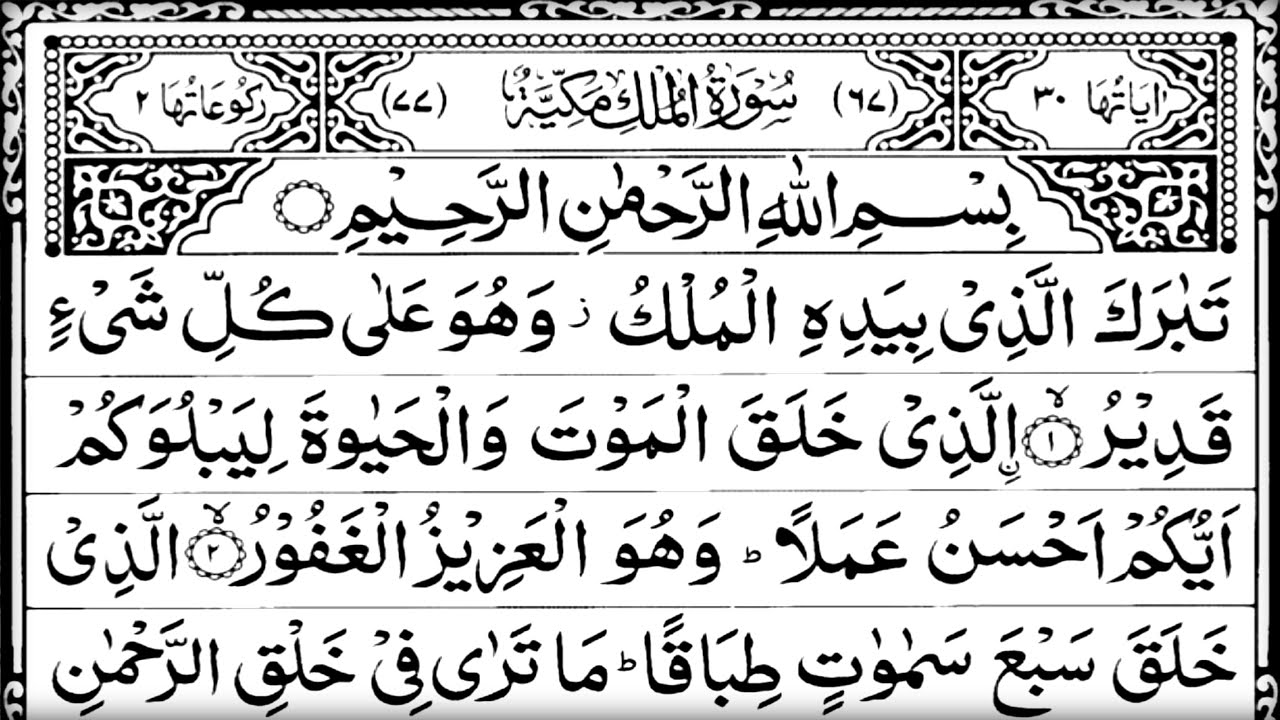 اٰيَاتُهَا ٣٠ (٦٧) سُوْرَةُ الْمُلْكِ مَكِّيَّةٌ (٧٧) رُكُوْعَاتُهَا ٢
بِسْمِ اللّٰهِ الرَّحْمٰنِ الرَّحِيْمِ ۝
تَبٰرَكَ الَّذِىْ بِيَدِهِ الْمُلْكُ ز وَهُوَ عَلٰى كُلِّ شَىْءٍ
قَدِيْرُ ۙ﴿١﴾ ۨالَّذِىْ خَلَقَ الْمَوْتَ وَالْحَيٰوةَ لِيَبْلُوَكُمْ
اَيُّكُمْ اَحْسَنُ عَمَلًا ؕ وَهُوَ الْعَزِيْزُ الْغَفُوْرُ ۙ﴿٢﴾ الَّذِىْ
خَلَقَ سَبْعَ سَمٰوٰتٍ طِبَاقًا ؕ مَا تَرٰى فِىْ خَلْقِ الرَّحْمٰنِ